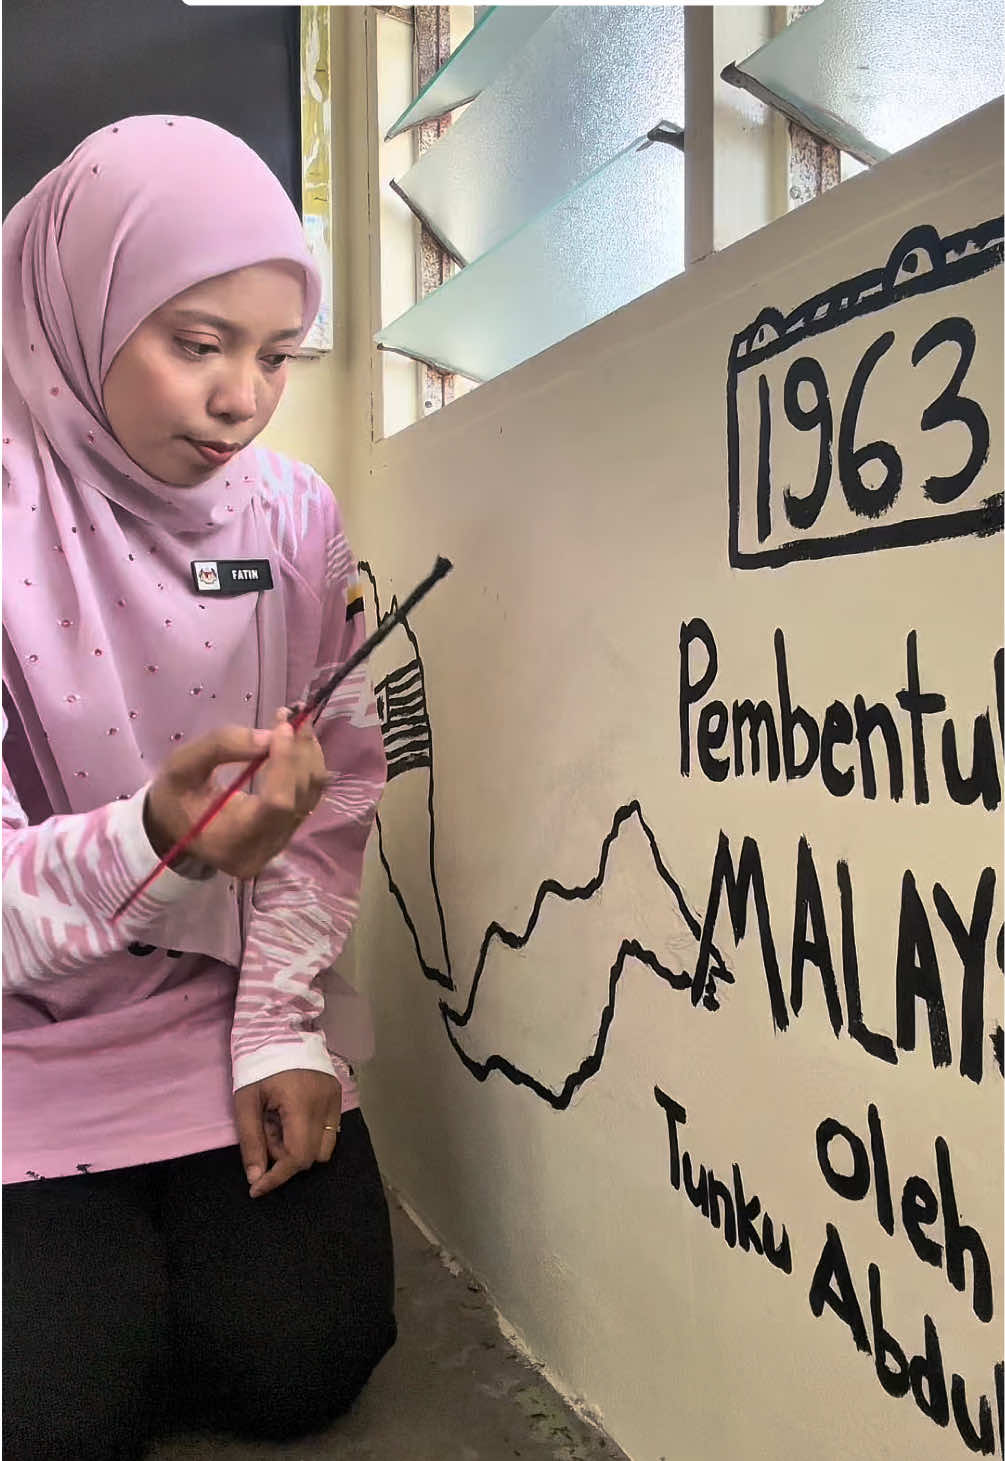 FATIN
1963
Pembentu
MALAY
Oleh
Tunku Abdul